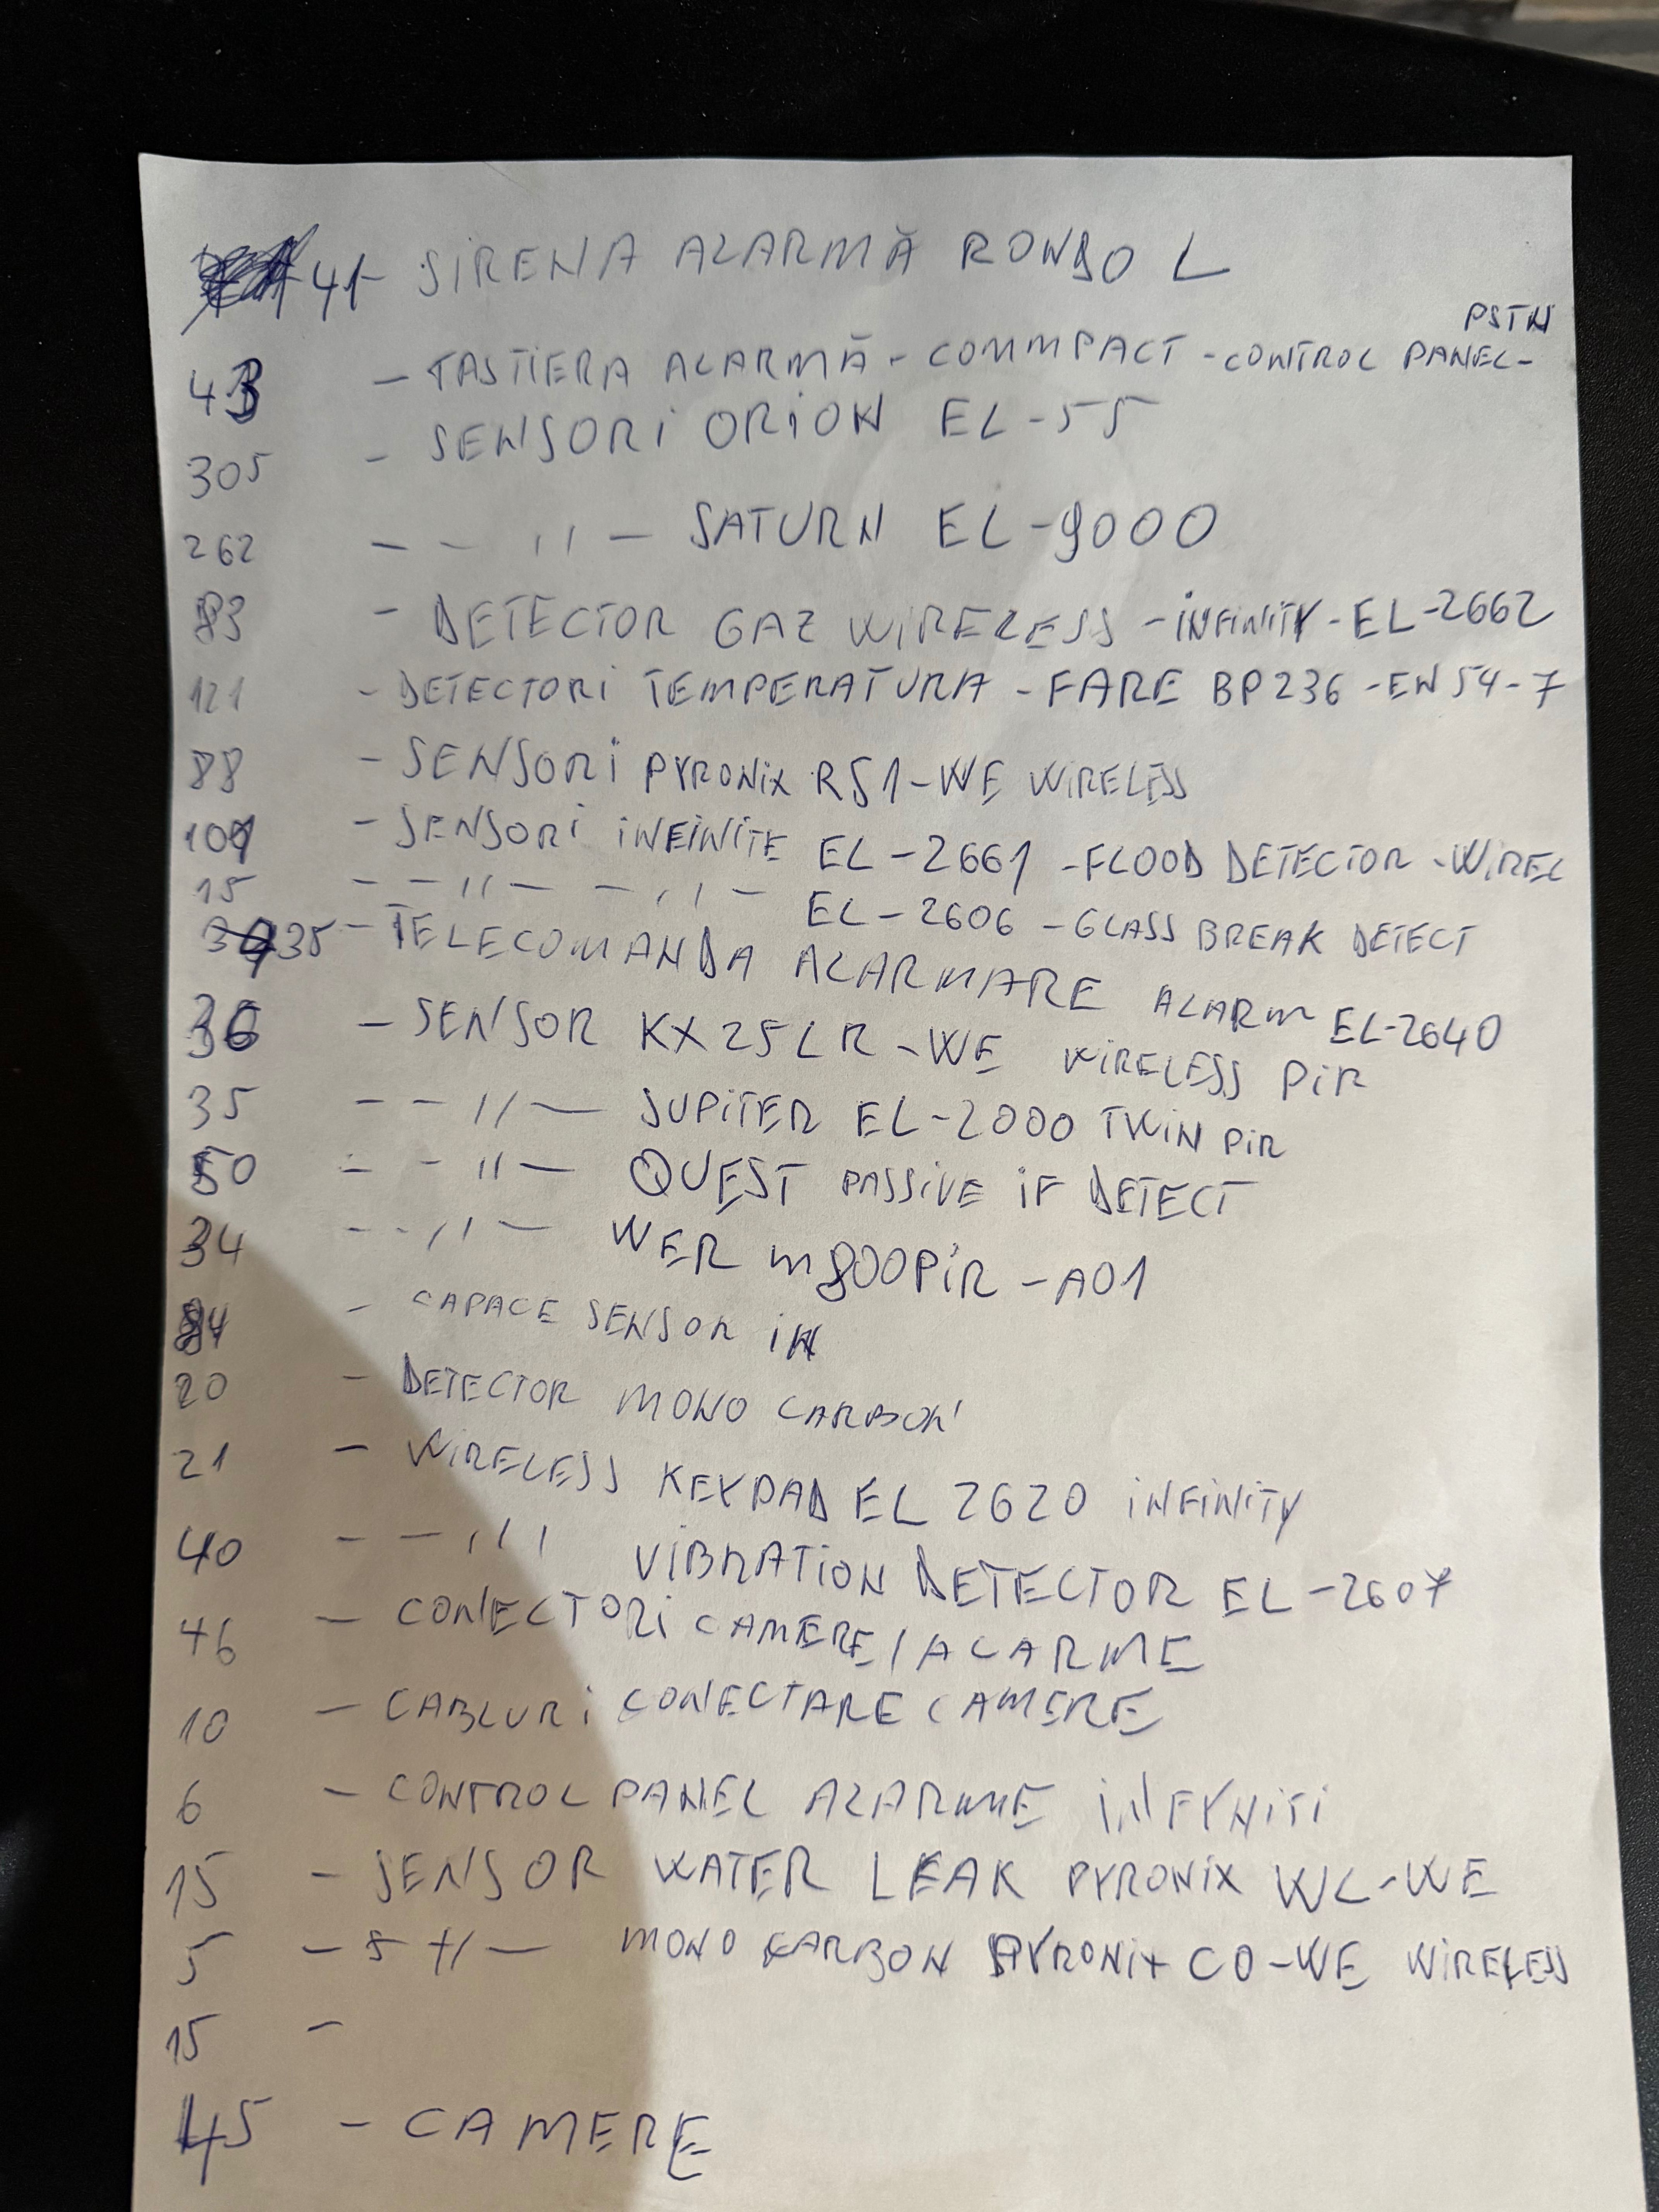 41 - SIRENA ALARMĂ RONDO L
PSTN
43 - TASTIERA ALARMĂ - COMMPACT - CONTROL PANEL -
305 - SENSORI ORION EL-55
262 - - ,, - SATURN EL-9000
83 - DETECTOR GAZ WIRELESS - INFINITY - EL-2662
121 - DETECTORI TEMPERATURA - FARE BP236 - EN54-7
88 - SENSORI PYRONIX RS1-WE WIRELESS
- SENSORI INFINITE EL-2661 - FLOOD DETECTOR - WIREL
15 - - ,, - - ,, - EL-2606 - GLASS BREAK DETECT
35 - TELECOMANDA ALARMARE ALARM EL-2640
36 - SENSOR KX25LR - WE WIRELESS PIR
35 - - ,, - JUPITER EL-2000 TWIN PIR
50 - - ,, - QUEST PASSIVE IF DETECT
34 - - ,, - WER M800PIR - A01
84 - CAPACE SENSOR
20 - DETECTOR MONO CARBON
21 - WIRELESS KEYPAD EL 2620 INFINITY
40 - - ,,, VIBRATION DETECTOR EL-2607
46 - CONECTORI CAMERE/ALARME
10 - CABLURI CONECTARE CAMERE
6 - CONTROL PANEL ALARME INFYNITI
15 - SENSOR WATER LEAK PYRONIX WL-WE
5 - ,, - MONO KARBON PYRONIX CO-WE WIRELESS
15 -
45 - CAMERE